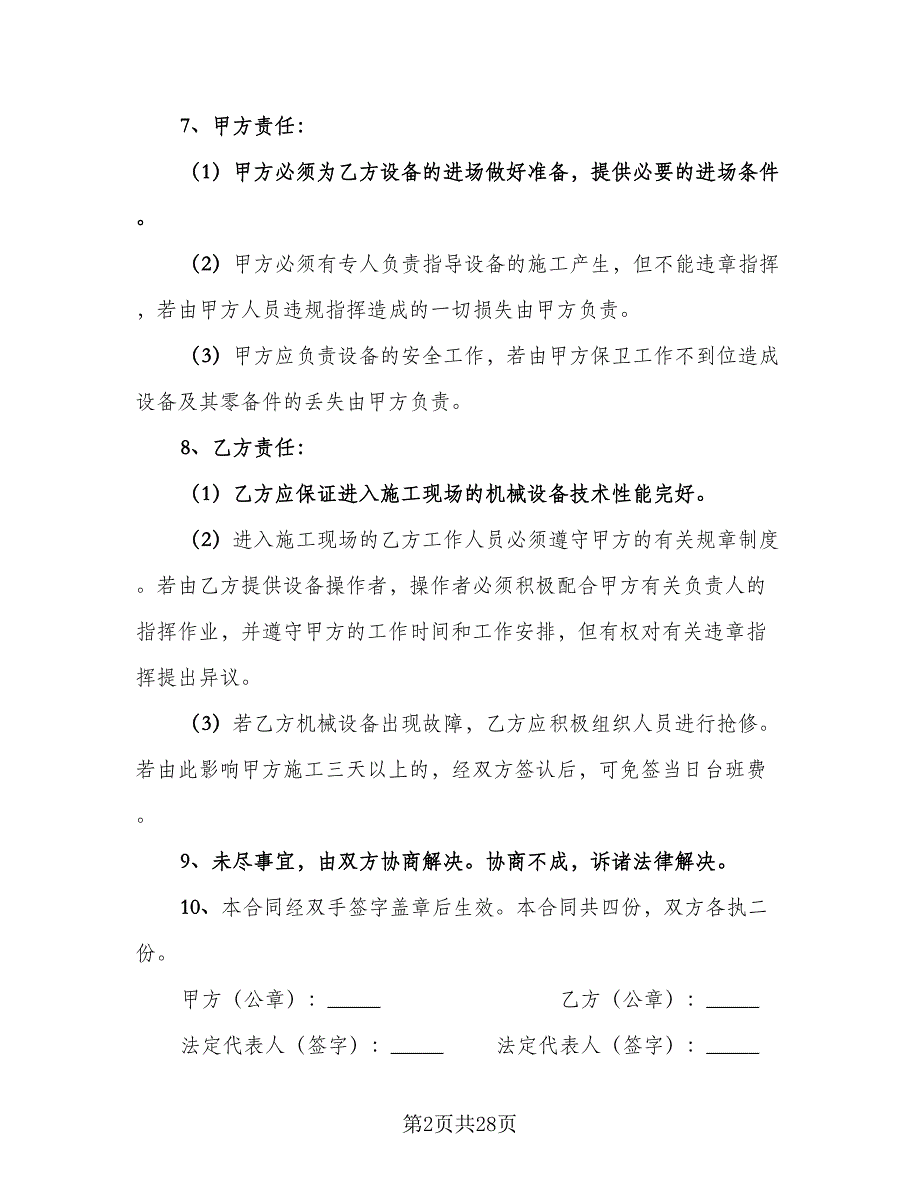 7、甲方责任：
（1）甲方必须为乙方设备的进场做好准备，提供必要的进场条件
。
（2）甲方必须有专人负责指导设备的施工产生，但不能违章指挥
，若由甲方人员违规指挥造成的一切损失由甲方负责。
（3）甲方应负责设备的安全工作，若由甲方保卫工作不到位造成
设备及其零备件的丢失由甲方负责。
8、乙方责任：
（1）乙方应保证进入施工现场的机械设备技术性能完好。
（2）进入施工现场的乙方工作人员必须遵守甲方的有关规章制度
。若由乙方提供设备操作者，操作者必须积极配合甲方有关负责人的
指挥作业，并遵守甲方的工作时间和工作安排，但有权对有关违章指
挥提出异议。
（3）若乙方机械设备出现故障，乙方应积极组织人员进行抢修。
若由此影响甲方施工三天以上的，经双方签认后，可免签当日台班费
。
9、未尽事宜，由双方协商解决。协商不成，诉诸法律解决。
10、本合同经双手签字盖章后生效。本合同共四份，双方各执二
份。
甲方（公章）：_____ 乙方（公章）：_____
法定代表人（签字）：_____ 法定代表人（签字）：_____
第2页共28页